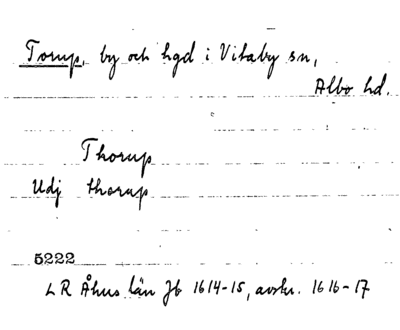 Torup, by och hgd i Vitaby sn,
Albo hd.
Thorup
Udj thorup
5222
LR Åhus län Jb 1614-15, avskr. 1616-17